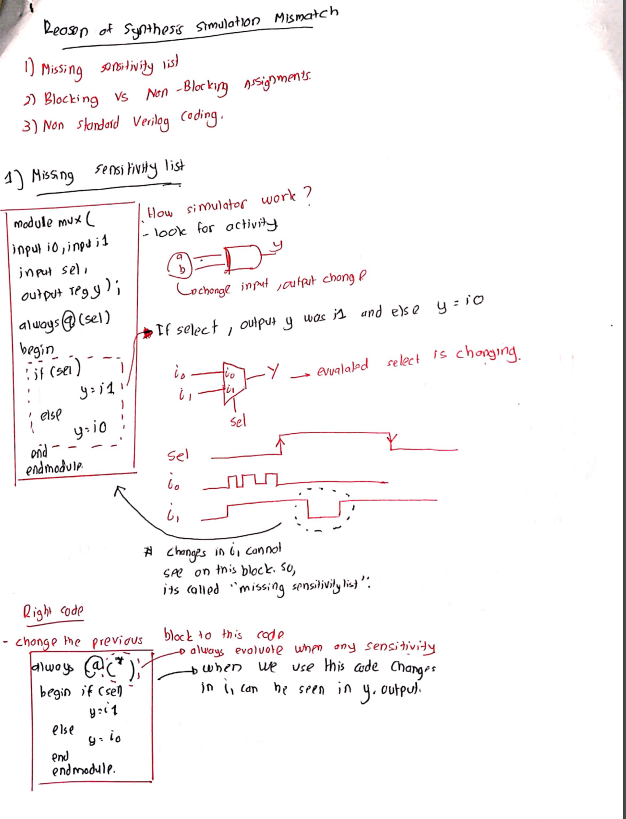 Reason of Synthesis simulation Mismatch
1) Missing sensitivity list
2) Blocking vs Non-Blocking Assignments.
3) Non standard Verilog Coding.
1) Missing sensitivity list
module mux (
input i0, input i1
input sel,
output reg y);
always @ (sel)
begin
if (sel)
y=i1
else
y=i0
end
endmodule.
How simulator work?
- look for activity
a
b
y
change input, output change
If select, output y was i1 and else y = i0
i0
i1
i0
i1
Y
sel
evualated select is changing.
sel
i0
i1
# changes in i1 cannot
see on this block. so,
its called "missing sensitivity list".
Right code
- change the previous block to this code
always @(*);
begin if (sel)
y=i1
else
y=i0
end
endmodule.
always evaluate when any sensitivity
when we use this code changes
in i1 can be seen in y. output.